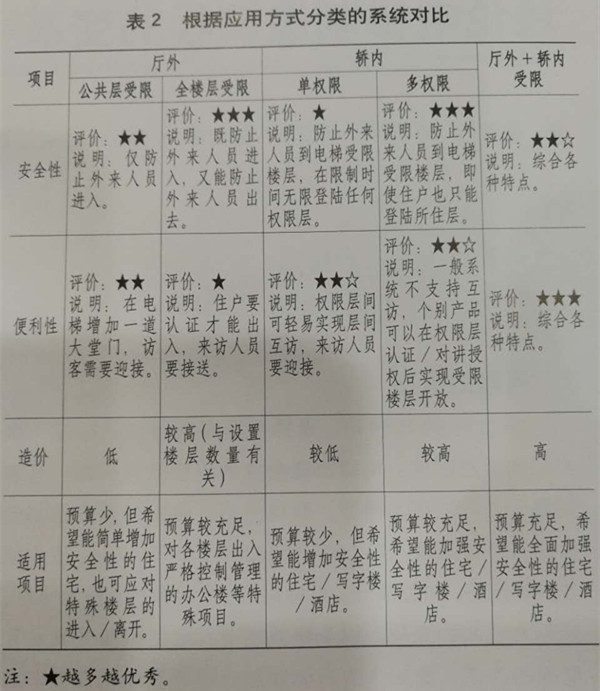 表 2 根据应用方式分类的系统对比
项目
厅外
轿内
厅外＋轿内
受限
公共层受限
全楼层受限
单权限
多权限
安全性
评价：★★
说明：仅防
止外来人员
进入。
评价：★★★
说明：既防止
外来人员进
入，又能防止
外来人员出
去。
评价：★
说明：防止外来
人员到电梯受限
楼层，在限制时
间无限登陆任何
权限层。
评价：★★★
说明：防止外
来人员到电梯
受限楼层，即
使住户也只能
登陆所住层。
评价：★★☆
说明：综合各
种特点。
便利性
评价：★★
说明：在电
梯增加一道
大堂门，访
客需要迎接。
评价：★
说明：住户要
认证才能出
入，来访人员
要接送。
评价：★★☆
说明：权限层间
可轻易实现层间
互访，来访人员
要迎接。
评价：★★☆
说明：一般系
统不支持互
访，个别产品
可以在权限层
认证／对讲授
权后实现受限
楼层开放。
评价：★★★
说明：综合各
种特点。
造价
低
较高（与设置
楼层数量有
关）
较低
较高
高
适用
项目
预算少，但希
望能简单增加
安全性的住
宅，也可应对
特殊楼层的
进入／离开。
预算较充足，
对各楼层出入
严格控制管理
的办公楼等特
殊项目。
预算较少，但希
望能增加安全性
的住宅／写字楼
／酒店。
预算较充足，
希望能加强安
全性的住宅／
写字楼／酒
店。
预算充足，希
望能全面加强
安全性的住宅
／写字楼／酒
店。
注：★越多越优秀。